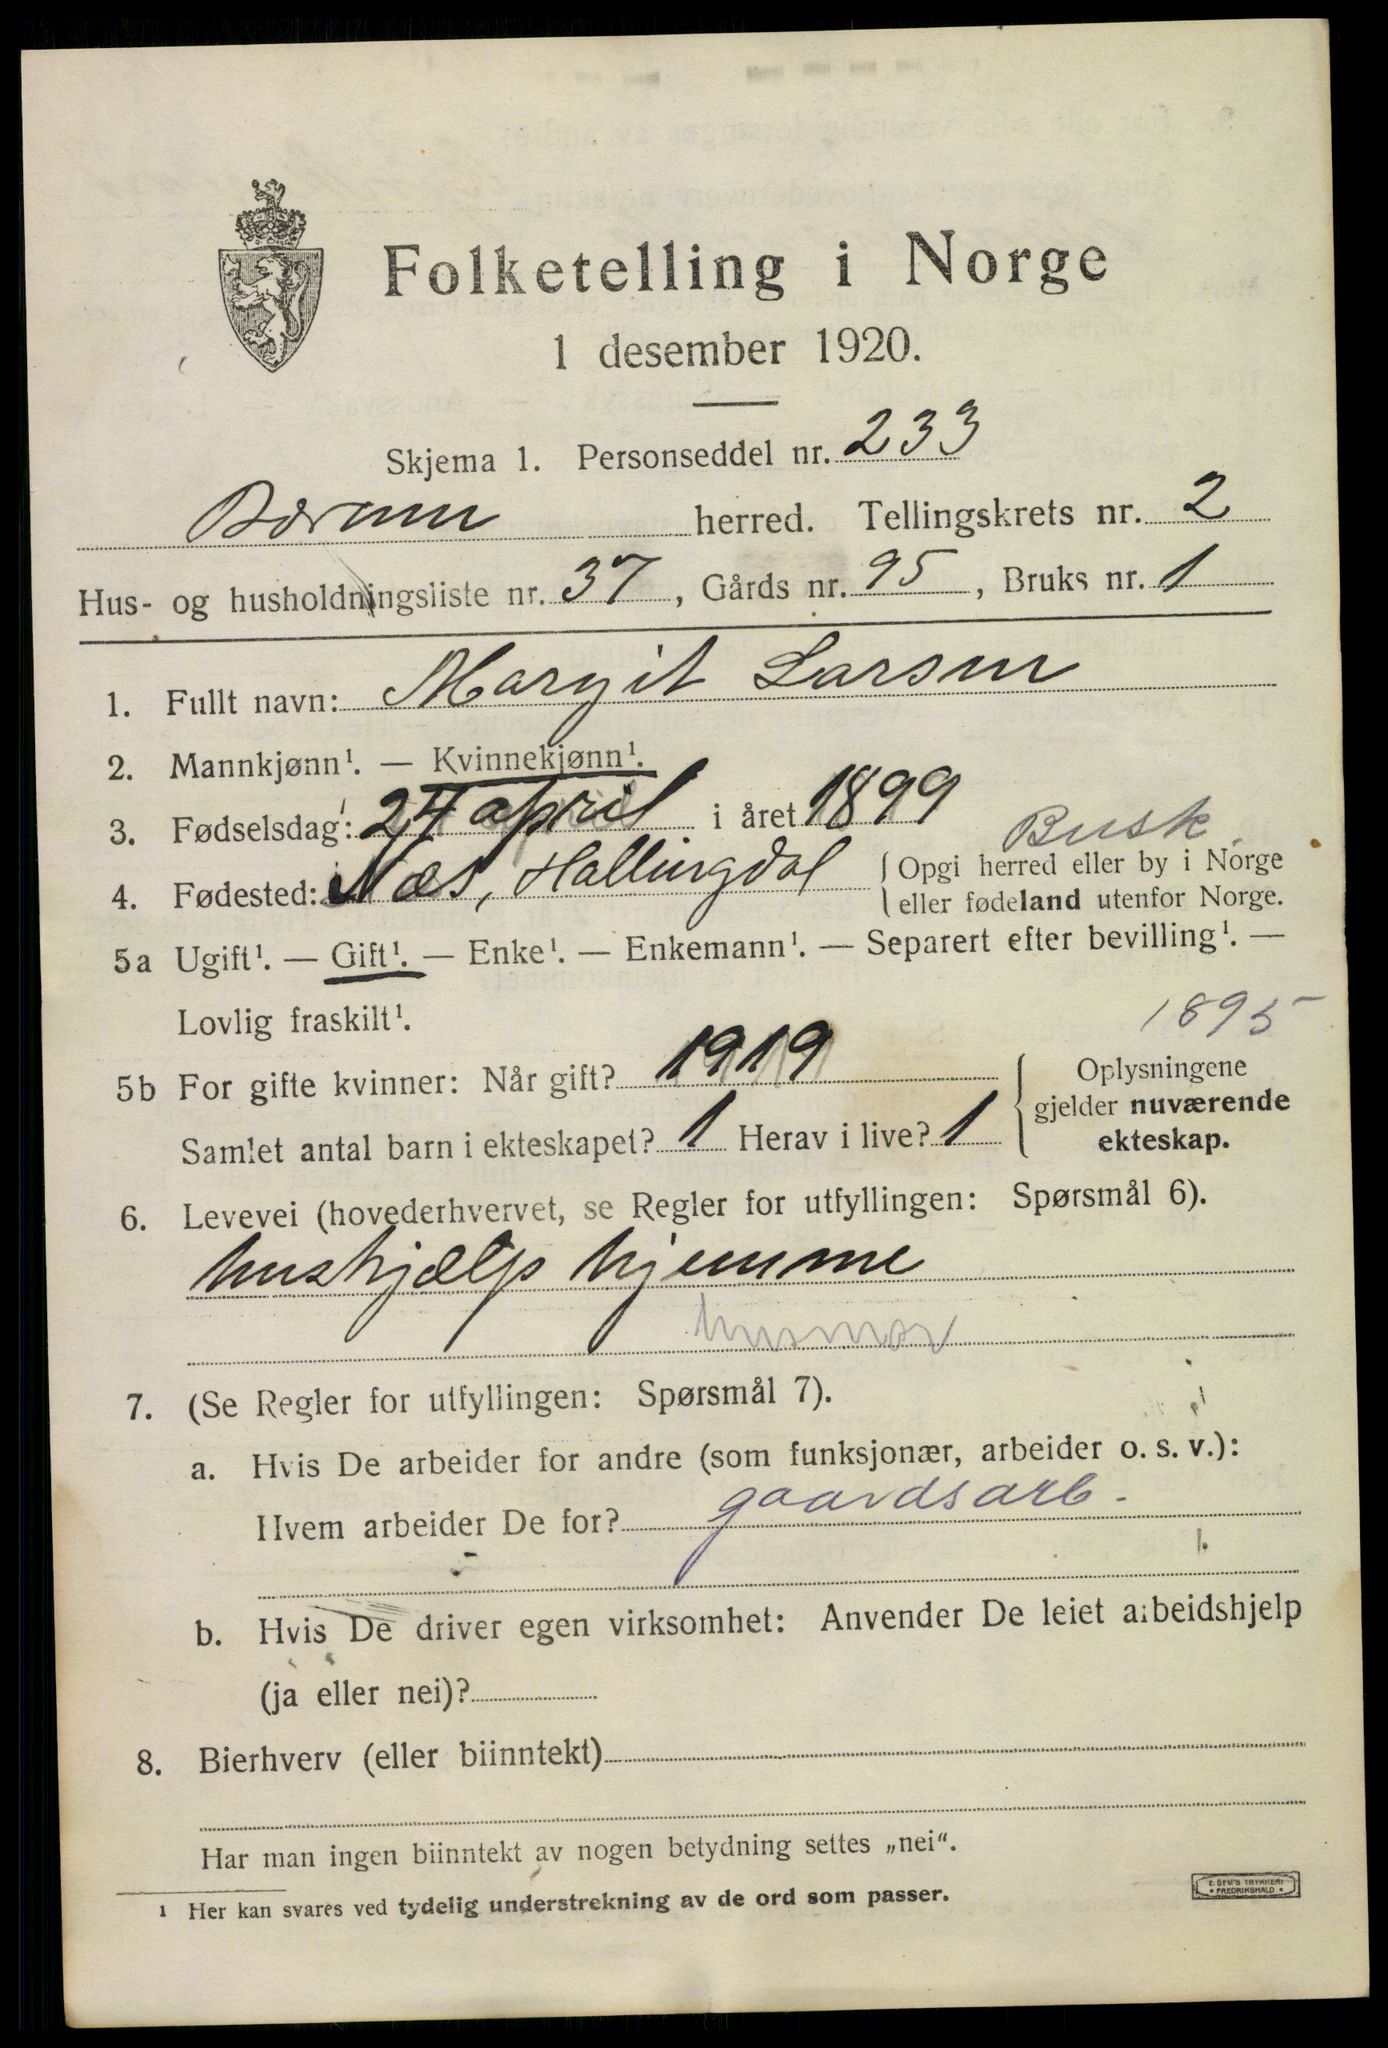 Folketelling i Norge
1 desember 1920.
Skjema 1. Personseddel nr. 233
Bærum herred. Tellingskrets nr. 2
Hus- og husholdningsliste nr. 37, Gårds nr. 95, Bruks nr. 1
1. Fullt navn: Margit Larsen
2. Mannkjønn¹. — Kvinnekjønn¹.
3. Fødselsdag: 24 april i året 1899
Busk.
4. Fødested: Næs, Hallingdal { Opgi herred eller by i Norge
eller fødeland utenfor Norge.
5a Ugift¹. — Gift¹. — Enke¹. — Enkemann¹. — Separert efter bevilling¹. —
Lovlig fraskilt¹.
1895
5b For gifte kvinner: Når gift? 1919
Samlet antal barn i ekteskapet? 1 Herav i live? 1
Oplysningene
gjelder nuværende
ekteskap.
6. Levevei (hovederhvervet, se Regler for utfyllingen: Spørsmål 6).
hushjælp hjemme
husmor
7. (Se Regler for utfyllingen: Spørsmål 7).
a. Hvis De arbeider for andre (som funksjonær, arbeider o. s. v.):
Hvem arbeider De for? gaardsarb.
b. Hvis De driver egen virksomhet: Anvender De leiet arbeidshjelp
(ja eller nei)?
8. Bierhverv (eller biinntekt)
Har man ingen biinntekt av nogen betydning settes „nei“.
¹ Her kan svares ved tydelig understrekning av de ord som passer.
E. SEM'S TRYKKERI
FREDRIKSHALD